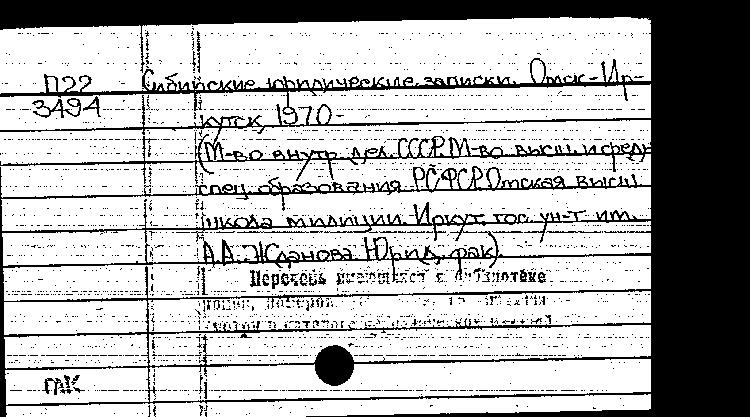 П22 Сибирские юридические записки. Омск-Ир-
3494 кутск, 1970-
(М-во внутр. дел. СССР. М-во высш. и средн.
спец. образования РСФСР. Омская высш.
школа милиции. Иркут. гос. ун-т им.
А.А. Жданова. Юрид. фак).
Перечень имеющихся в библиотеке
ГАК